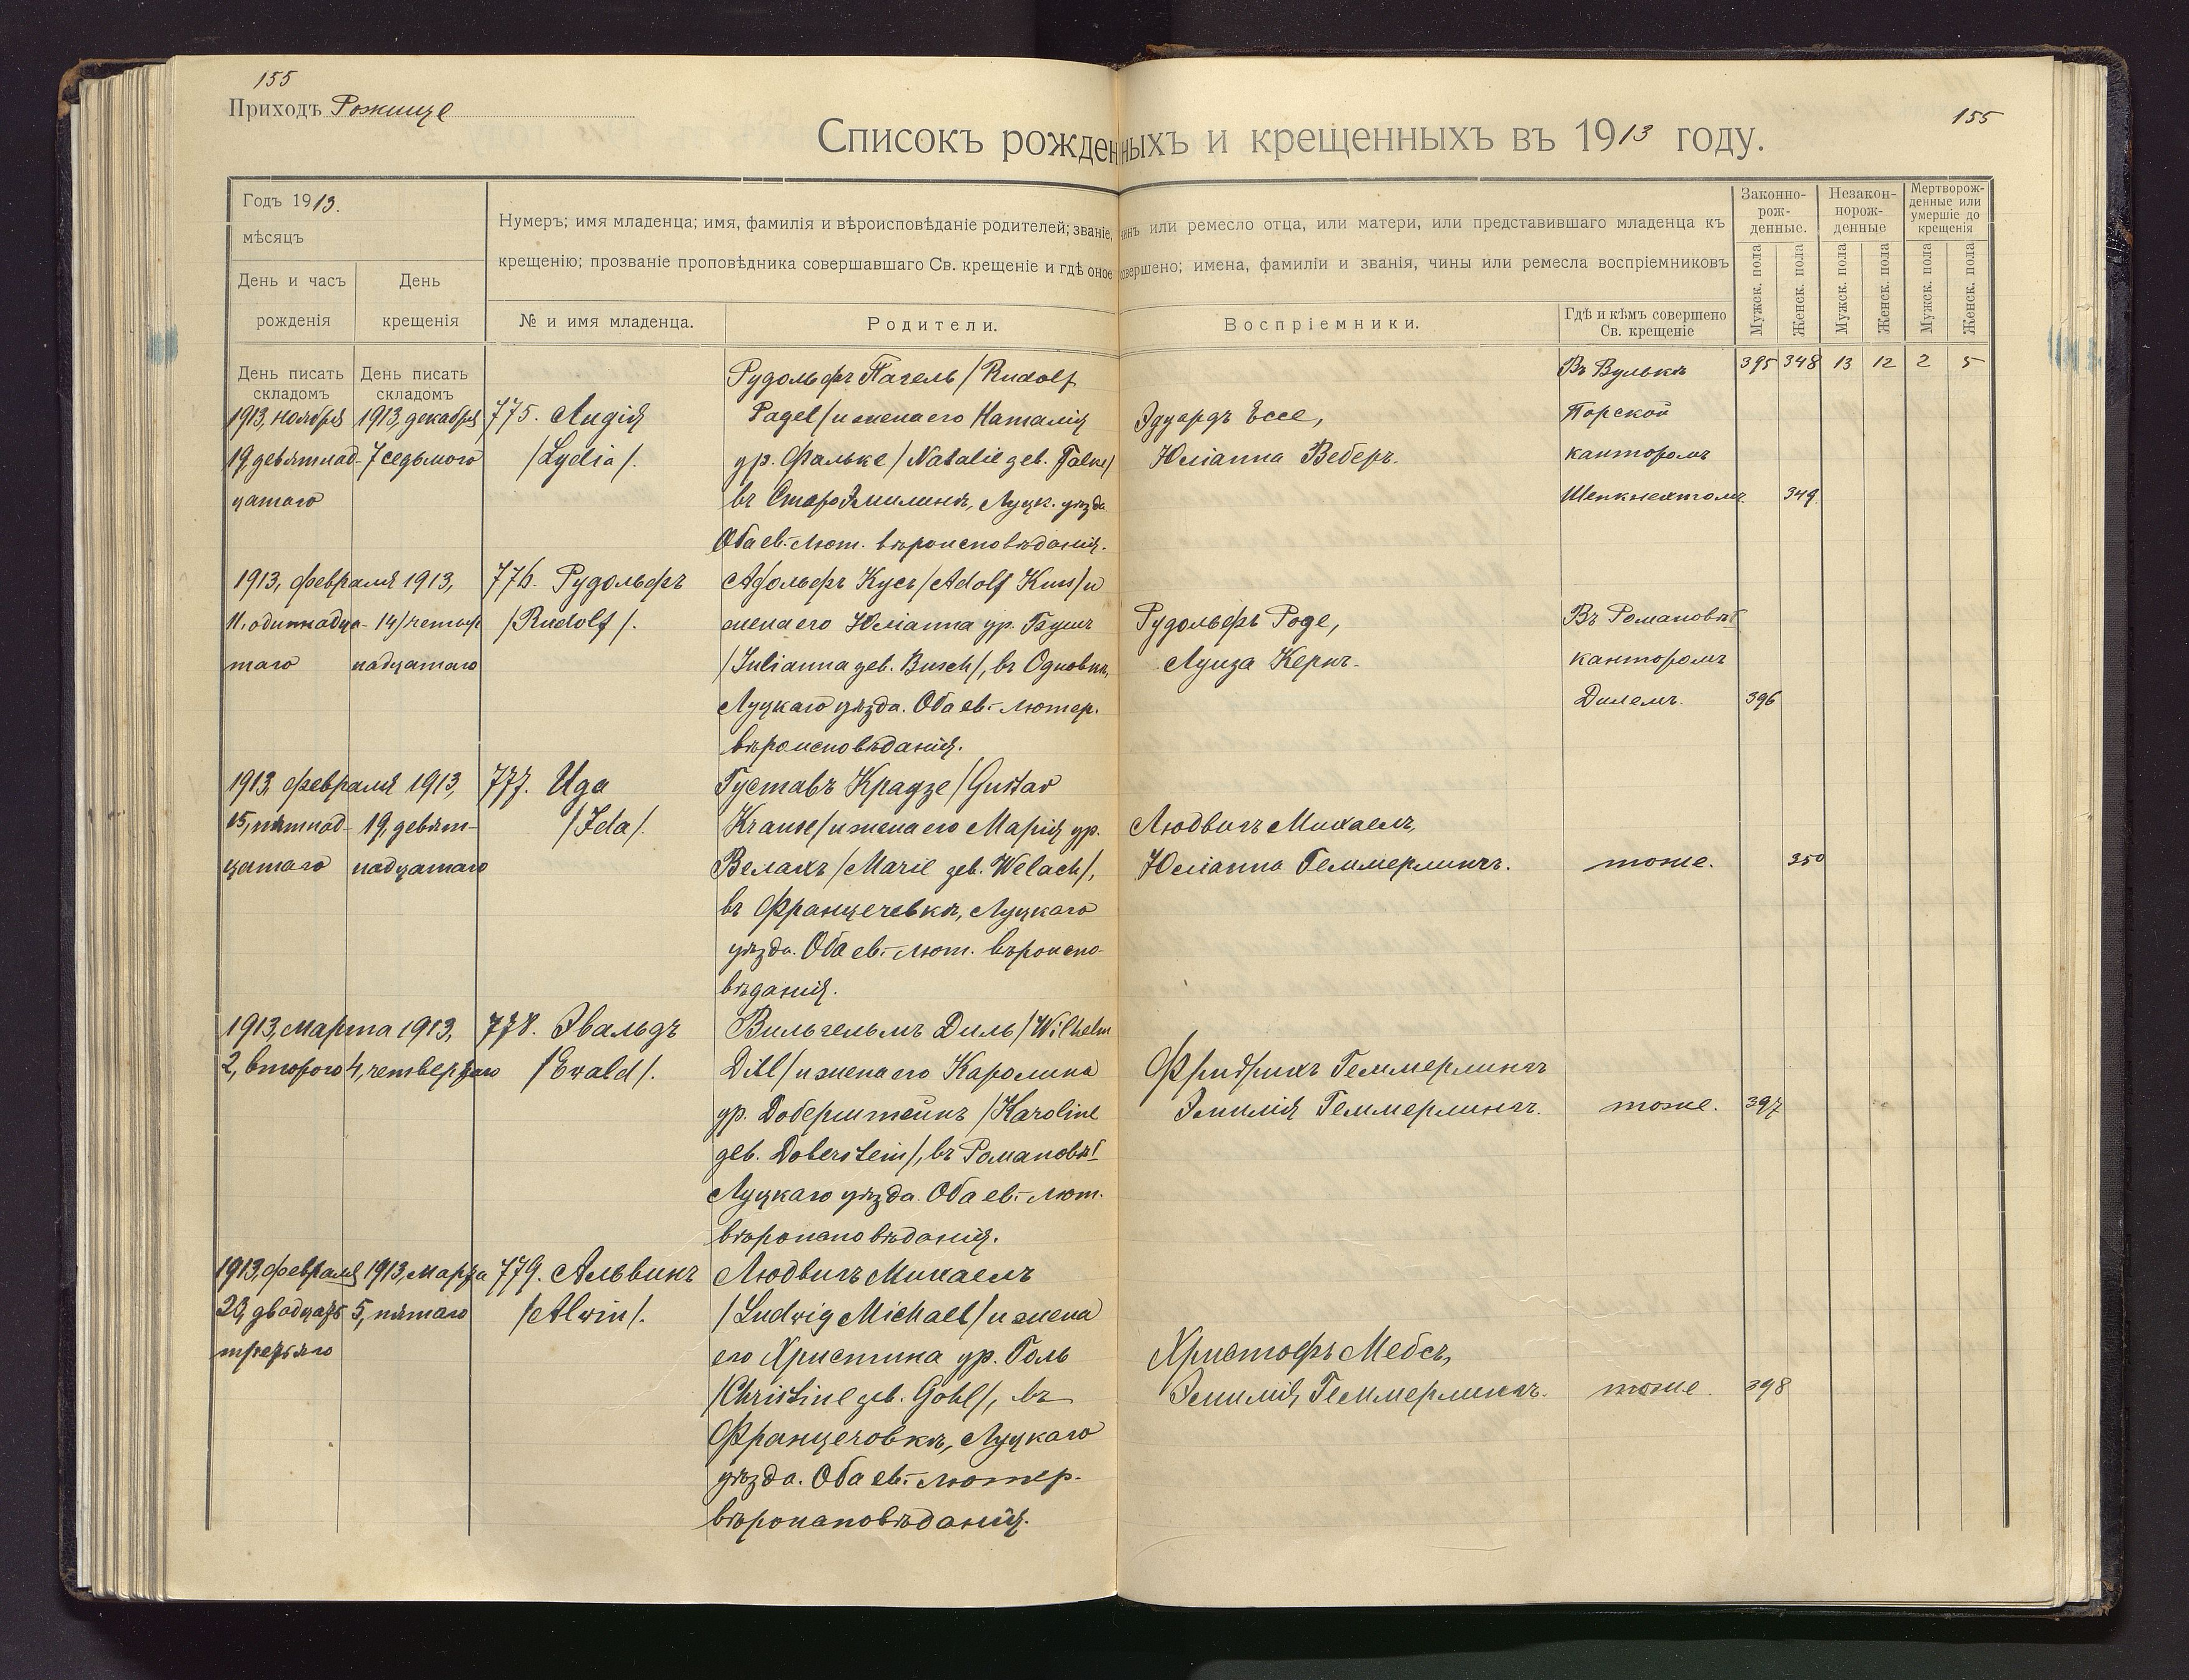 155
Приходъ Рожище
155
Списокъ рожденныхъ и крещенныхъ въ 1913 году.
Годъ 1913.
мѣсяцъ
День и часъ рожденія
День крещенія
Нумеръ; имя младенца; имя, фамилія и вѣроисповѣданіе родителей; званіе, чинъ или ремесло отца, или матери, или представившаго младенца къ
крещенію; прозваніе проповѣдника совершавшаго Св. крещеніе и гдѣ оное совершено; имена, фамиліи и званія, чины или ремесла воспріемниковъ
№ и имя младенца.
Родители.
Воспріемники.
Гдѣ и кѣмъ совершено
Св. крещеніе
Законно-
рож-
денные.
Незакон-
норож-
денные
Мертворож-
денные или
умершіе до
крещенія
Мужск. пола
Женск. пола
Мужск. пола
Женск. пола
Мужск. пола
Женск. пола
День писать
складомъ
День писать
складомъ
395 348 13 12 2 5
1913, ноября
19, девятнад-
цатаго
1913, декабря
7 седьмого
775. Лидія
/Lydia/.
Рудольфъ Пагель /Rudolf
Pagel/ и жена его Наталія
ур. Фальке /Natalie геб. Falke/
въ Старо Эмилинѣ, Луцк. уѣзда
Оба ев.-лют. вѣроисповѣданія.
Эдуардъ Ессе,
Юліанна Веберъ.
Въ Вулькѣ
Торской
канторомъ
Шенкнехтомъ.
349.
1913, февраля
11, одиннадца-
таго
1913,
14, четыр
надцатаго
776. Рудольфъ
/Rudolf/.
Адольфъ Кусъ /Adolf Kuss/ и
жена его Юліанна ур. Бушъ
/Julianna геб. Busch/, въ Одновкѣ,
Луцкаго уѣзда. Оба ев.-лютер.
вѣроисповѣданія.
Рудольфъ Роде,
Луиза Кернъ.
Въ Романовѣ I
канторомъ
Дилемъ.
396
1913, февраля
15, пятнад-
цатаго
1913,
19, девят-
надцатаго
777. Ида
/Ida/.
Густавъ Краузе /Gustav
Krause/ и жена его Марія ур.
Велахъ /Marie геб. Welach/,
въ Францечевкѣ, Луцкаго
уѣзда. Оба ев.-лют. вѣроиспо-
вѣданія.
Людвигъ Михаелъ,
Юліанна Геммерлингъ.
тоже.
350
1913, марта
2, второго
1913,
4, четвертаго
778. Эвальдъ
/Ewald/.
Вильгельмъ Диль /Wilhelm
Dill/ и жена его Каролина
ур. Доберштейнъ /Karoline
геб. Doberstein/, въ Романовѣ I
Луцкаго уѣзда. Оба ев.-лют.
вѣроисповѣданія.
Фридрихъ Геммерлингъ
Эмилія Геммерлингъ.
тоже.
397
1913, февраля
23, двадцать
третьяго
1913, марта
5, пятаго
779. Альвинъ
/Alwin/.
Людвигъ Михаелъ
/Ludwig Michael/ и жена
его Христина ур. Голь
/Christine геб. Gohl/, въ
Францечовкѣ, Луцкаго
уѣзда. Оба ев.-лютер.
вѣроисповѣданія.
Христофъ Мебсъ,
Эмилія Геммерлингъ.
тоже.
398